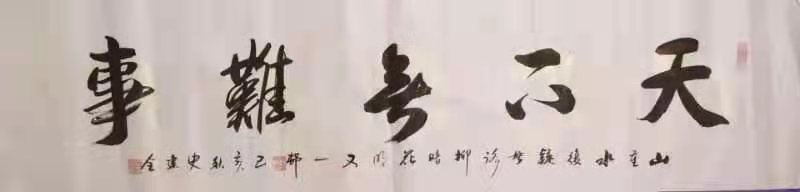 天下無難事
山重水復疑無路柳暗花明又一邨己亥秋史建全